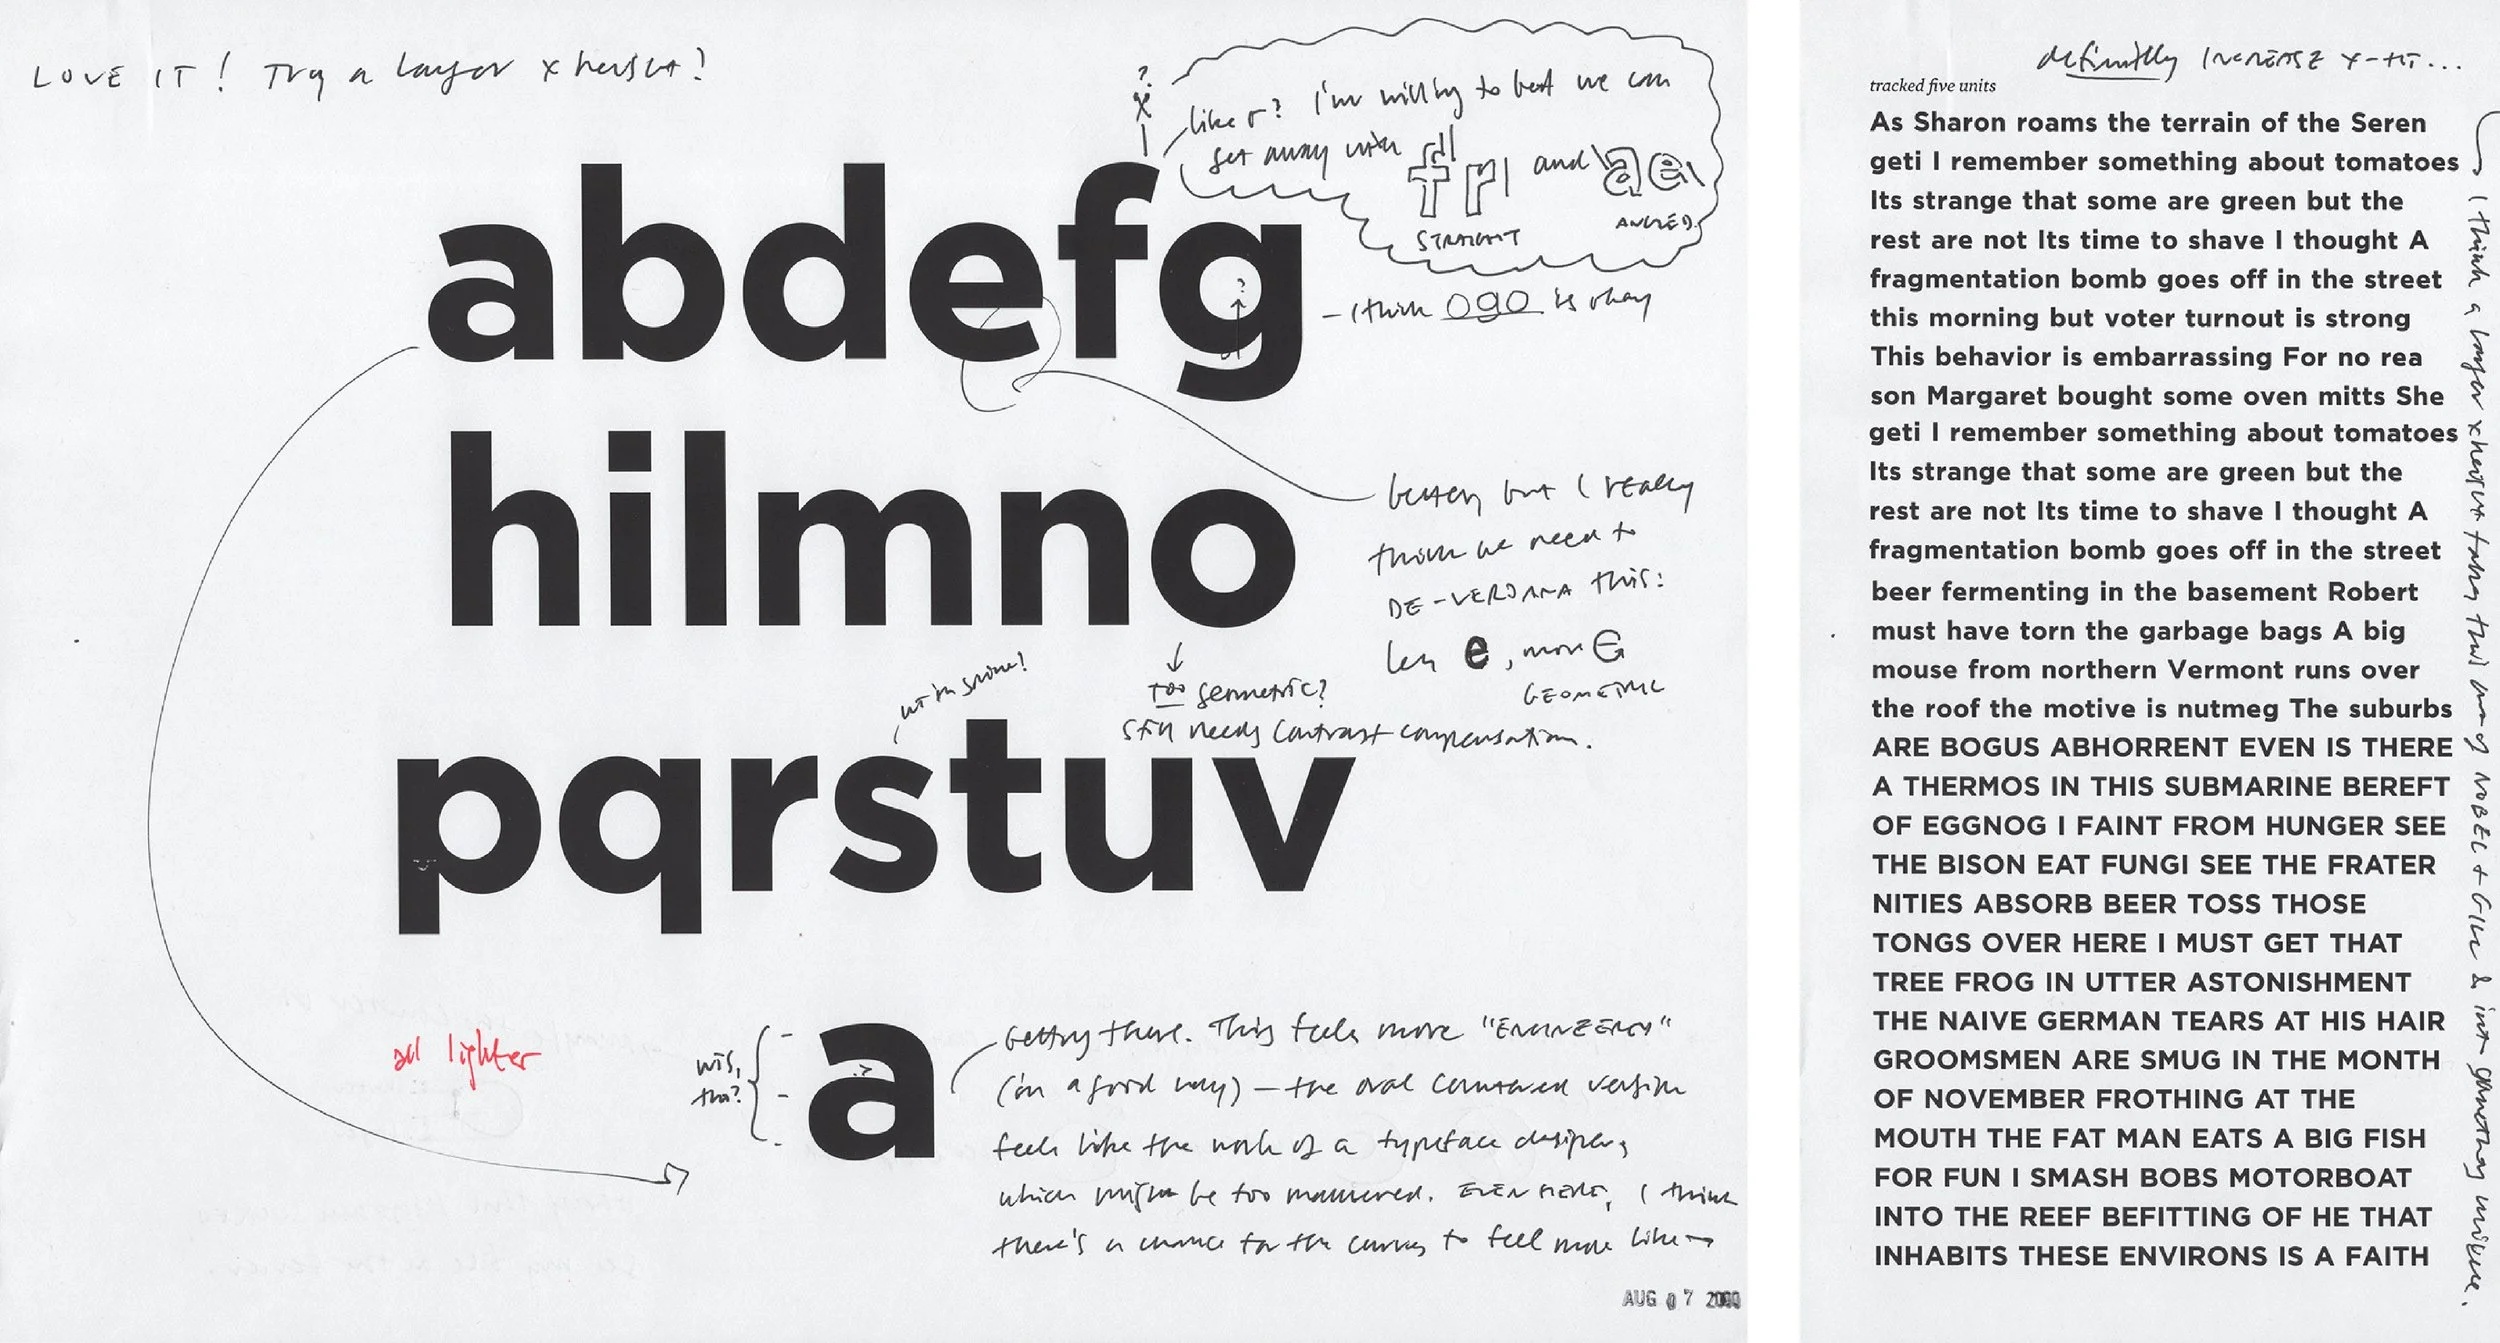 LOVE IT! Try a larger x height?
?
like r? I'm willing to bet we can
get away with fr and ae
STRAIGHT
ANGLED.
abdefg
?
– I think ogo is okay
hilmno
better, but I really
think we need to
DE-VERDANA this:
less e, more e
GEOMETRIC
too geometric?
Still needs contrast compensation.
pqrstuv
all lighter
a
Getting there. This feels more "ENGINEERED"
(in a good way) – the oval countered version
feels like the work of a typeface designer,
which might be too mannered. EVEN HERE, I think
there's a chance for the curves to feel more like →
AUG 07 2000
definitely INCREASE X-HT...
tracked five units
As Sharon roams the terrain of the Seren
geti I remember something about tomatoes
Its strange that some are green but the
rest are not Its time to shave I thought A
fragmentation bomb goes off in the street
this morning but voter turnout is strong
This behavior is embarrassing For no rea
son Margaret bought some oven mitts She
geti I remember something about tomatoes
Its strange that some are green but the
rest are not Its time to shave I thought A
fragmentation bomb goes off in the street
beer fermenting in the basement Robert
must have torn the garbage bags A big
mouse from northern Vermont runs over
the roof the motive is nutmeg The suburbs
ARE BOGUS ABHORRENT EVEN IS THERE
A THERMOS IN THIS SUBMARINE BEREFT
OF EGGNOG I FAINT FROM HUNGER SEE
THE BISON EAT FUNGI SEE THE FRATER
NITIES ABSORB BEER TOSS THOSE
TONGS OVER HERE I MUST GET THAT
TREE FROG IN UTTER ASTONISHMENT
THE NAIVE GERMAN TEARS AT HIS HAIR
GROOMSMEN ARE SMUG IN THE MONTH
OF NOVEMBER FROTHING AT THE
MOUTH THE FAT MAN EATS A BIG FISH
FOR FUN I SMASH BOBS MOTORBOAT
INTO THE REEF BEFITTING OF HE THAT
INHABITS THESE ENVIRONS IS A FAITH
I think a larger x height takes this out of NOBEL + GILL & into something unique.